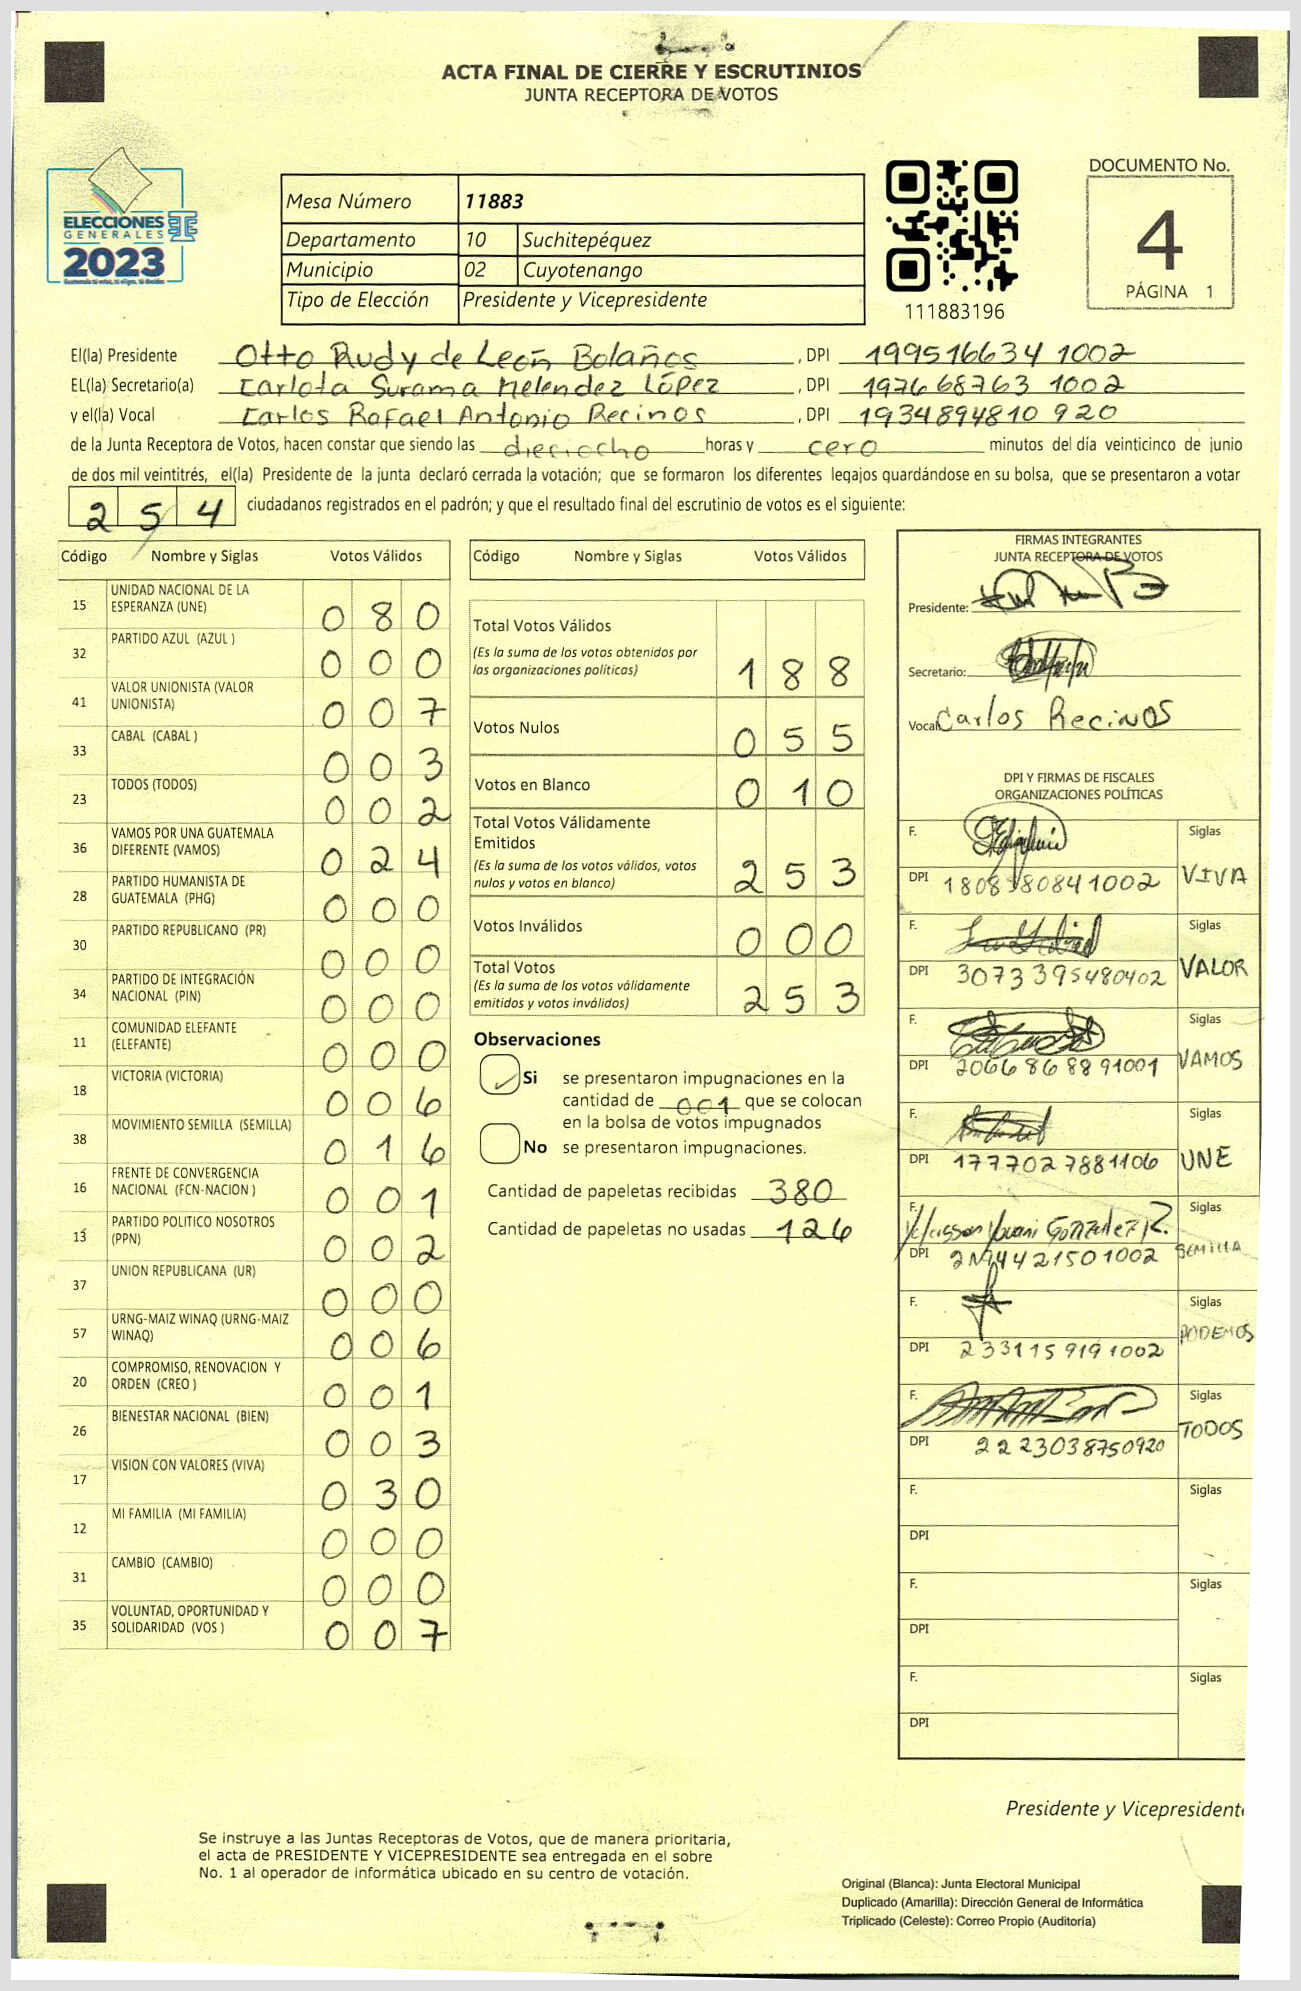 ACTA FINAL DE CIERRE Y ESCRUTINIOS
JUNTA RECEPTORA DE VOTOS
ELECCIONES
GENERALES
2023
Mesa Número 11883
Departamento 10 Suchitepéquez
Municipio 02 Cuyotenango
Tipo de Elección Presidente y Vicepresidente
111883196
DOCUMENTO No.
4
PÁGINA 1
El(la) Presidente Otto Rudy de León Bolaños, DPI 199516634 1002
EL(la) Secretario(a) Carlota Surama Melendez López, DPI 1976 68763 1002
y el(la) Vocal Carlos Rafael Antonio Recinos, DPI 1934894810 920
de la Junta Receptora de Votos, hacen constar que siendo las dieciocho horas y cero minutos del día veinticinco de junio
de dos mil veintitrés, el(la) Presidente de la junta declaró cerrada la votación; que se formaron los diferentes legajos guardándose en su bolsa, que se presentaron a votar
254 ciudadanos registrados en el padrón; y que el resultado final del escrutinio de votos es el siguiente:
Código Nombre y Siglas Votos Válidos
15 UNIDAD NACIONAL DE LA ESPERANZA (UNE) 080
32 PARTIDO AZUL (AZUL ) 000
41 VALOR UNIONISTA (VALOR UNIONISTA) 007
33 CABAL (CABAL ) 003
23 TODOS (TODOS) 002
36 VAMOS POR UNA GUATEMALA DIFERENTE (VAMOS) 024
28 PARTIDO HUMANISTA DE GUATEMALA (PHG) 000
30 PARTIDO REPUBLICANO (PR) 000
34 PARTIDO DE INTEGRACIÓN NACIONAL (PIN) 000
11 COMUNIDAD ELEFANTE (ELEFANTE) 000
18 VICTORIA (VICTORIA) 006
38 MOVIMIENTO SEMILLA (SEMILLA) 016
16 FRENTE DE CONVERGENCIA NACIONAL (FCN-NACION ) 001
13 PARTIDO POLITICO NOSOTROS (PPN) 002
37 UNION REPUBLICANA (UR) 000
57 URNG-MAIZ WINAQ (URNG-MAIZ WINAQ) 006
20 COMPROMISO, RENOVACION Y ORDEN (CREO ) 001
26 BIENESTAR NACIONAL (BIEN) 003
17 VISION CON VALORES (VIVA) 030
12 MI FAMILIA (MI FAMILIA) 000
31 CAMBIO (CAMBIO) 000
35 VOLUNTAD, OPORTUNIDAD Y SOLIDARIDAD (VOS ) 007
Código Nombre y Siglas Votos Válidos
Total Votos Válidos
(Es la suma de los votos obtenidos por
las organizaciones políticas) 188
Votos Nulos 055
Votos en Blanco 010
Total Votos Válidamente
Emitidos
(Es la suma de los votos válidos, votos
nulos y votos en blanco) 253
Votos Inválidos 000
Total Votos
(Es la suma de los votos válidamente
emitidos y votos inválidos) 253
Observaciones
Si se presentaron impugnaciones en la
cantidad de 001 que se colocan
en la bolsa de votos impugnados
No se presentaron impugnaciones.
Cantidad de papeletas recibidas 380
Cantidad de papeletas no usadas 126
FIRMAS INTEGRANTES
JUNTA RECEPTORA DE VOTOS
Presidente:
Secretario:
Vocal Carlos Recinos
DPI Y FIRMAS DE FISCALES
ORGANIZACIONES POLÍTICAS
F. Siglas
DPI VIVA
F. Siglas
DPI 3073395480402 VALOR
F. Siglas
DPI 2066868891001 VAMOS
F. Siglas
DPI 1777027881106 UNE
F. Siglas
DPI SEMILLA
F. Siglas
DPI 2331159191002 PODEMOS
F. Siglas
DPI 2223038750920 TODOS
F. Siglas
DPI
F. Siglas
DPI
F. Siglas
DPI
Presidente y Vicepresident
Se instruye a las Juntas Receptoras de Votos, que de manera prioritaria,
el acta de PRESIDENTE Y VICEPRESIDENTE sea entregada en el sobre
No. 1 al operador de informática ubicado en su centro de votación.
Original (Blanca): Junta Electoral Municipal
Duplicado (Amarilla): Dirección General de Informática
Triplicado (Celeste): Correo Propio (Auditoría)